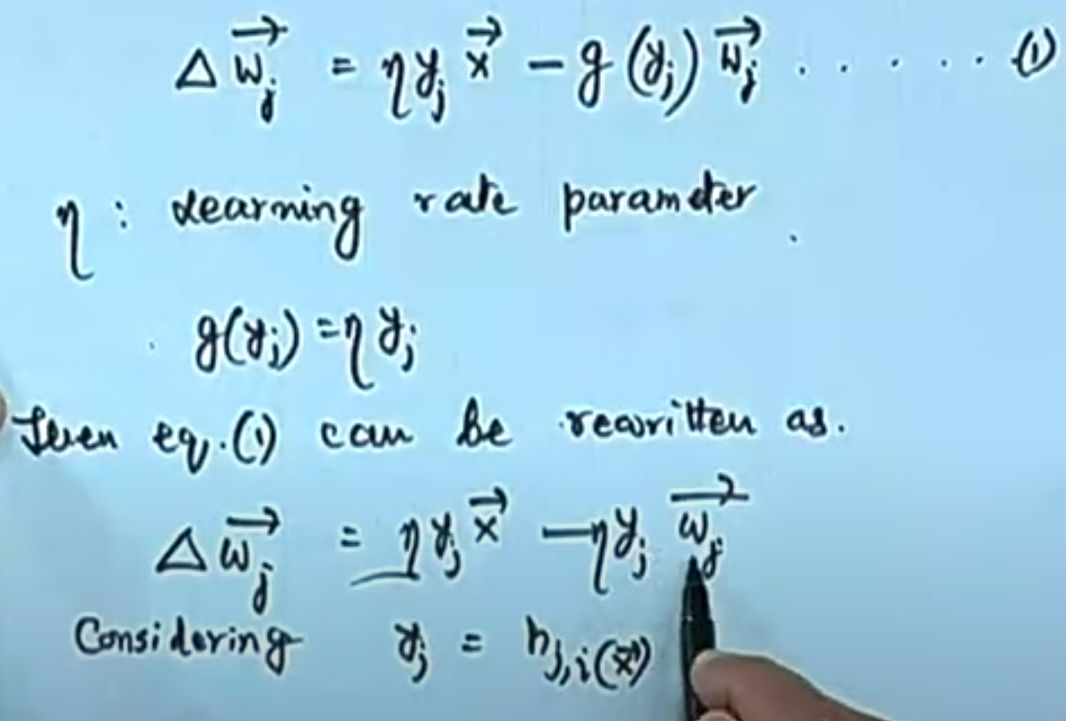 Δw⃗ⱼ = ηyⱼx⃗ − g(yⱼ)w⃗ⱼ . . . . . . (1)
η : Learning rate parameter .
g(yⱼ) = ηyⱼ
Then eq.(1) can be rewritten as.
Δw⃗ⱼ = ηyⱼx⃗ − ηyⱼw⃗ⱼ
Considering yⱼ = hⱼ,ᵢ(x⃗)